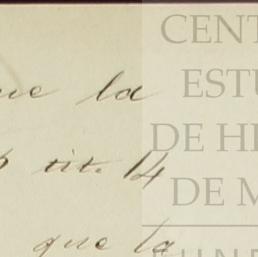 que la
tit. 14
que la
CENT
ESTU
DE HI
DE M